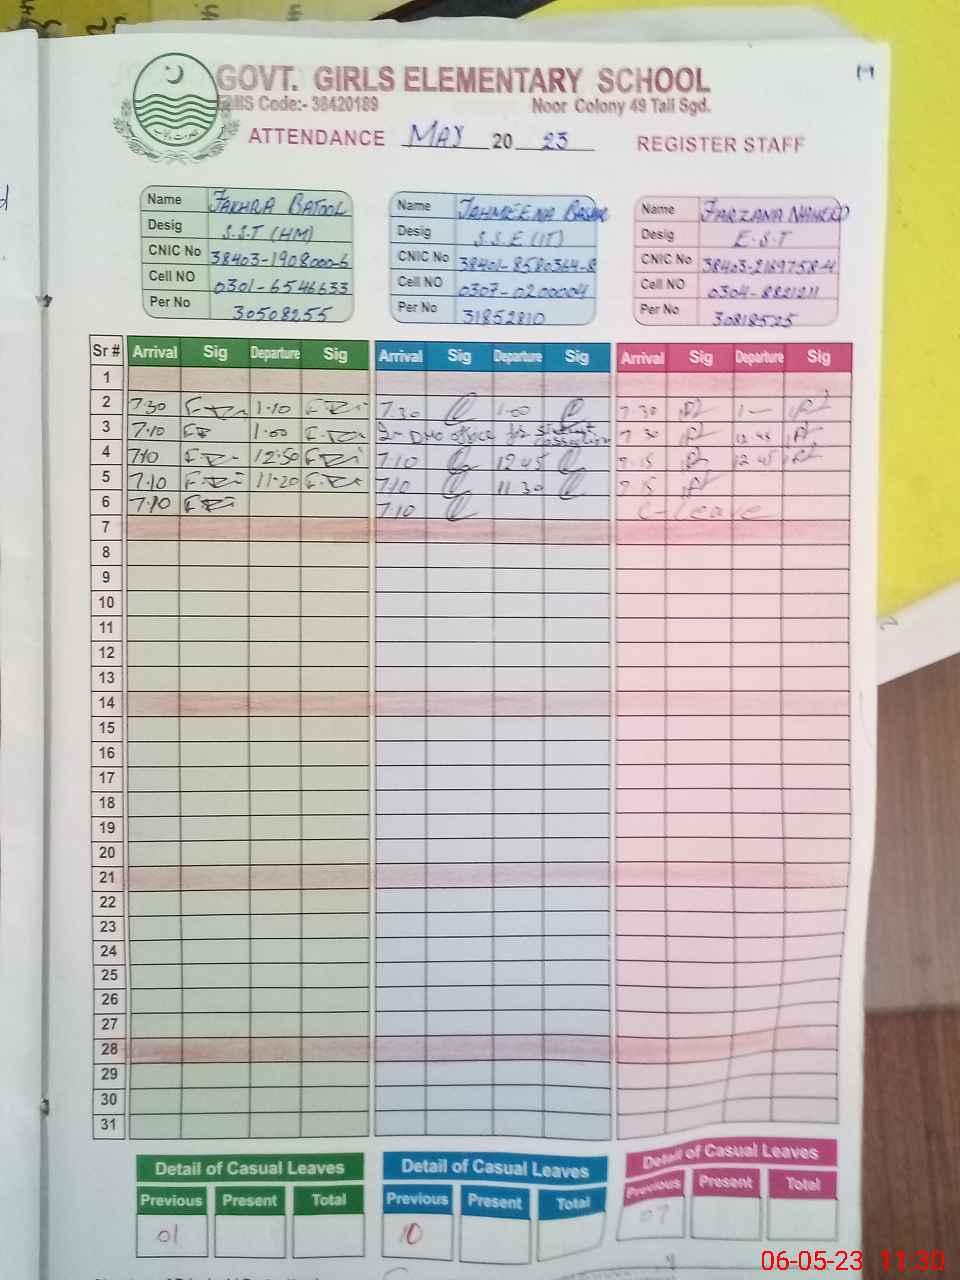 GOVT. GIRLS ELEMENTARY SCHOOL
EMIS Code:- 38420189 Noor Colony 49 Tail Sgd.
ATTENDANCE MAY 20 23 REGISTER STAFF
Name FAKHRA BATOOL
Desig S.S.T (HM)
CNIC No 38403-1908000-6
Cell NO 0301-6546633
Per No 30508255
Name TAHMEENA BASHIR
Desig S.S.E (IT)
CNIC No 38401-8580364-8
Cell NO 0307-0200004
Per No 31852810
Name FARZANA NAHEED
Desig E.S.T
CNIC No 38403-2189758-4
Cell NO 0304-8821211
Per No 30818525
Sr # Arrival Sig Departure Sig Arrival Sig Departure Sig Arrival Sig Departure Sig
1
2 7.30 1.10 7.30 1.00 7.30 1—
3 7.10 1.00 In office for 7.30 12.45
4 7.10 12.50 7.10 12.45 7.15 12.45
5 7.10 11.20 7.10 11.30 7.15
6 7.10 7.10 C-Leave
7
8
9
10
11
12
13
14
15
16
17
18
19
20
21
22
23
24
25
26
27
28
29
30
31
Detail of Casual Leaves Detail of Casual Leaves Detail of Casual Leaves
Previous Present Total Previous Present Total Previous Present Total
01 10 07
06-05-23 11:30